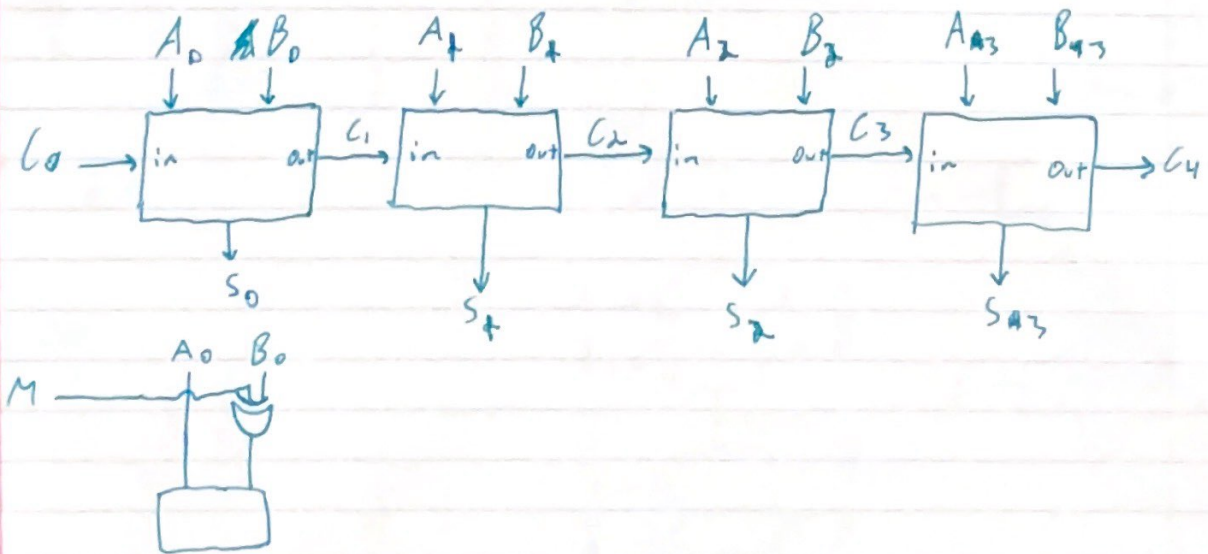 A₀ B₀ A₁ B₁ A₂ B₂ A₃ B₃
C₀ in out C₁ in out C₂ in out C₃ in out C₄
S₀ S₁ S₂ S₃
A₀ B₀
M